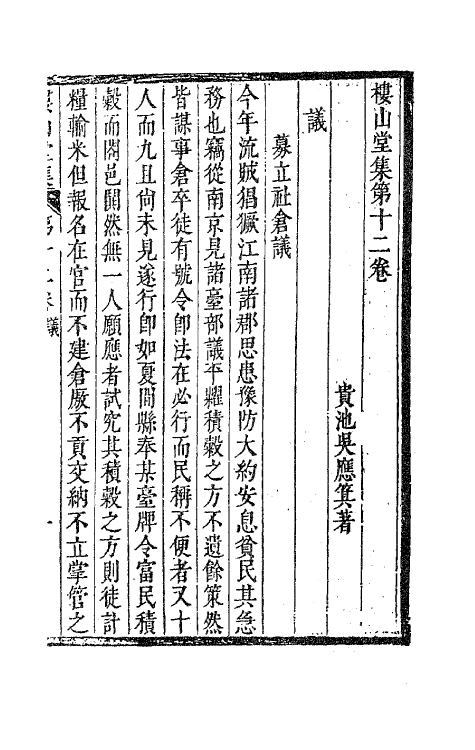 樓山堂集第十二卷
貴池吳應箕著
議
募立社倉議
今年流賊猖獗江南諸郡思患豫防大約安息貧民其急
務也竊從南京見諸臺部議平糶積穀之方不遺餘策然
皆謀事倉卒徒有號令卽法在必行而民稱不便者又十
人而九且尚未見遂行卽如夏間縣奉某臺牌令富民積
穀而閤邑鬨然無一人願應者試究其積穀之方則徒計
糧輸米但報名在官而不建倉廒不貢交納不立掌管之
樓山堂集 第十二卷 議 一